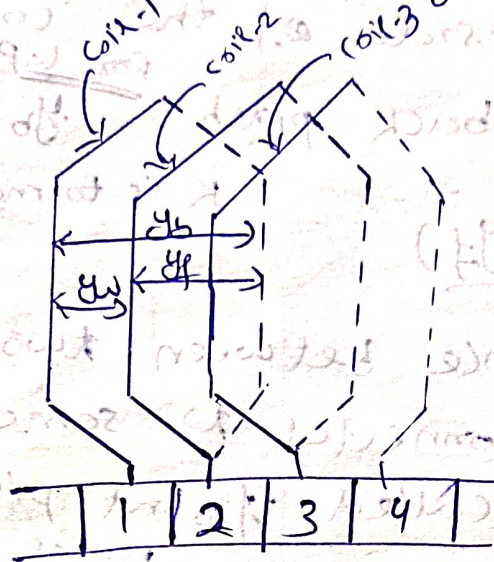 coil-1
coil-2
coil-3
yb
yf
yw
1 2 3 4